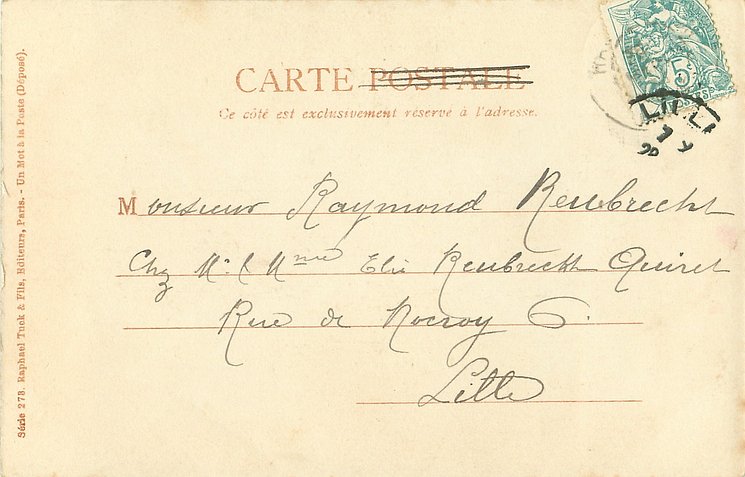 CARTE POSTALE
Ce côté est exclusivement réservé à l'adresse.
LILL
Monsieur Raymond Reubrecht
Chez Mr. & Mme Elie Reubrecht Quiret
Rue de Rocroy 6.
Lille
Série 273. Raphael Tuck & Fils, Editeurs, Paris. - Un Mot à la Poste (Déposé).